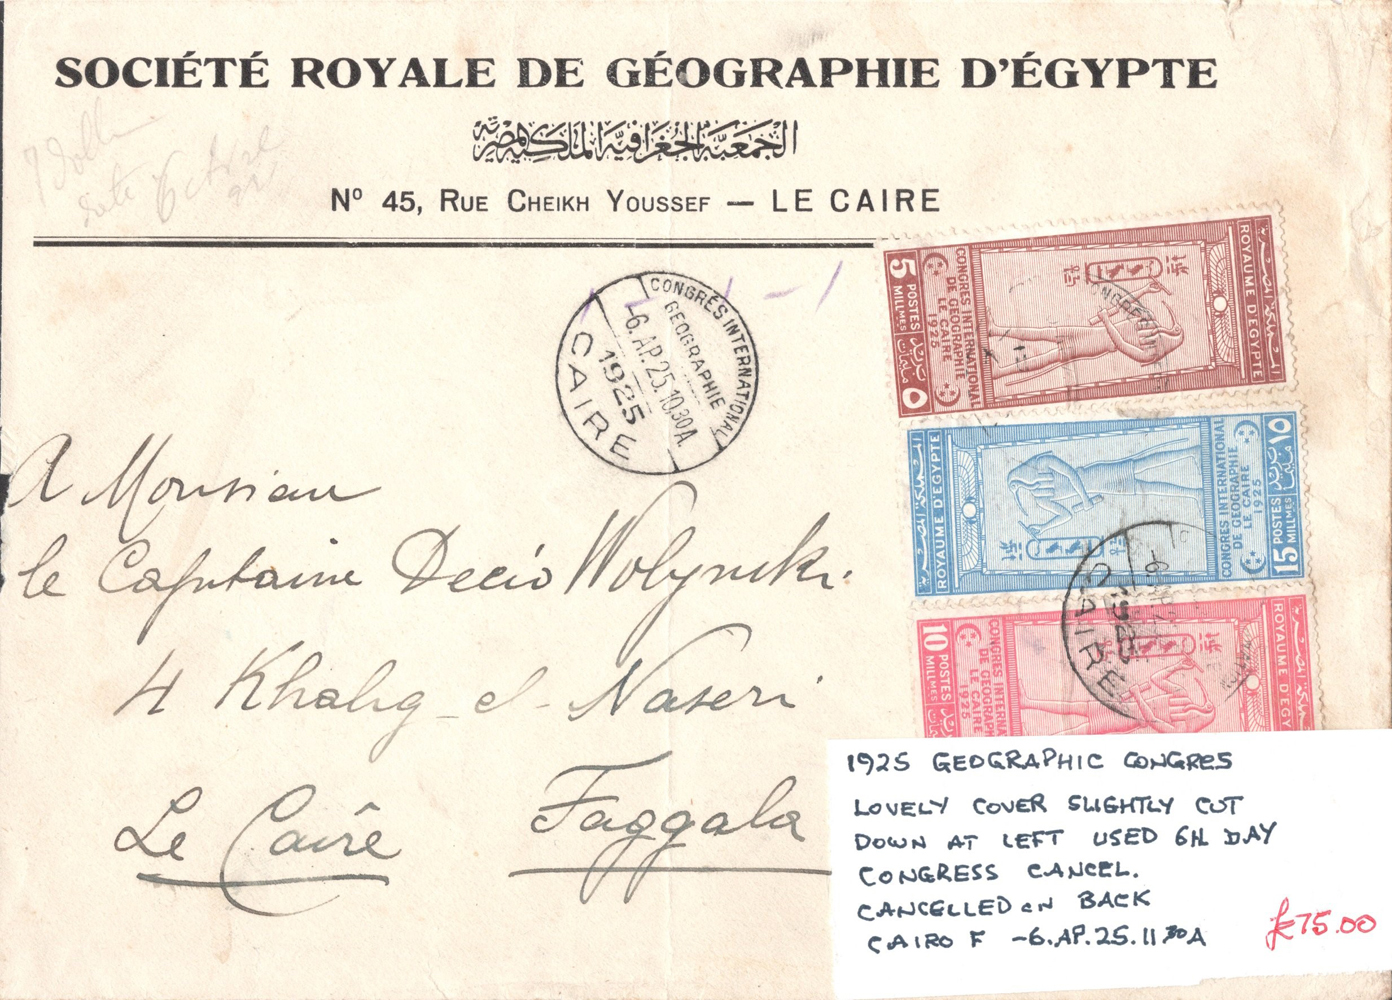 SOCIÉTÉ ROYALE DE GÉOGRAPHIE D'ÉGYPTE
الجمعية الجغرافية الملكية المصرية
Nº 45, Rue Cheikh Youssef — LE CAIRE
CONGRÈS INTERNATIONAL
GEOGRAPHIE
-6.AP.25.10.30A.
1925
CAIRE
5
POSTES
MILLMES
CONGRÈS INTERNATIONAL
DE GÉOGRAPHIE
LE CAIRE
1925
ROYAUME D'ÉGYPTE
ROYAUME D'ÉGYPTE
CONGRÈS INTERNATIONAL
DE GÉOGRAPHIE
LE CAIRE
1925
15 POSTES
MILLMES
١٥
10
POSTES
MILLMES
CONGRÈS INTERNA
DE GÉOGRAPH
LE CAIRE
1925
ROYAUME D'ÉGY
1925
CAIRE
A Monsieur
le Capitaine Decio Wolynski
4 Khalig el-Naseri
Le Caire Faggala
1925 GEOGRAPHIC CONGRES
LOVELY COVER SLIGHTLY CUT
DOWN AT LEFT USED 6th DAY
CONGRESS CANCEL.
CANCELLED ON BACK
CAIRO F -6.AP.25.11 30 A
£75.00